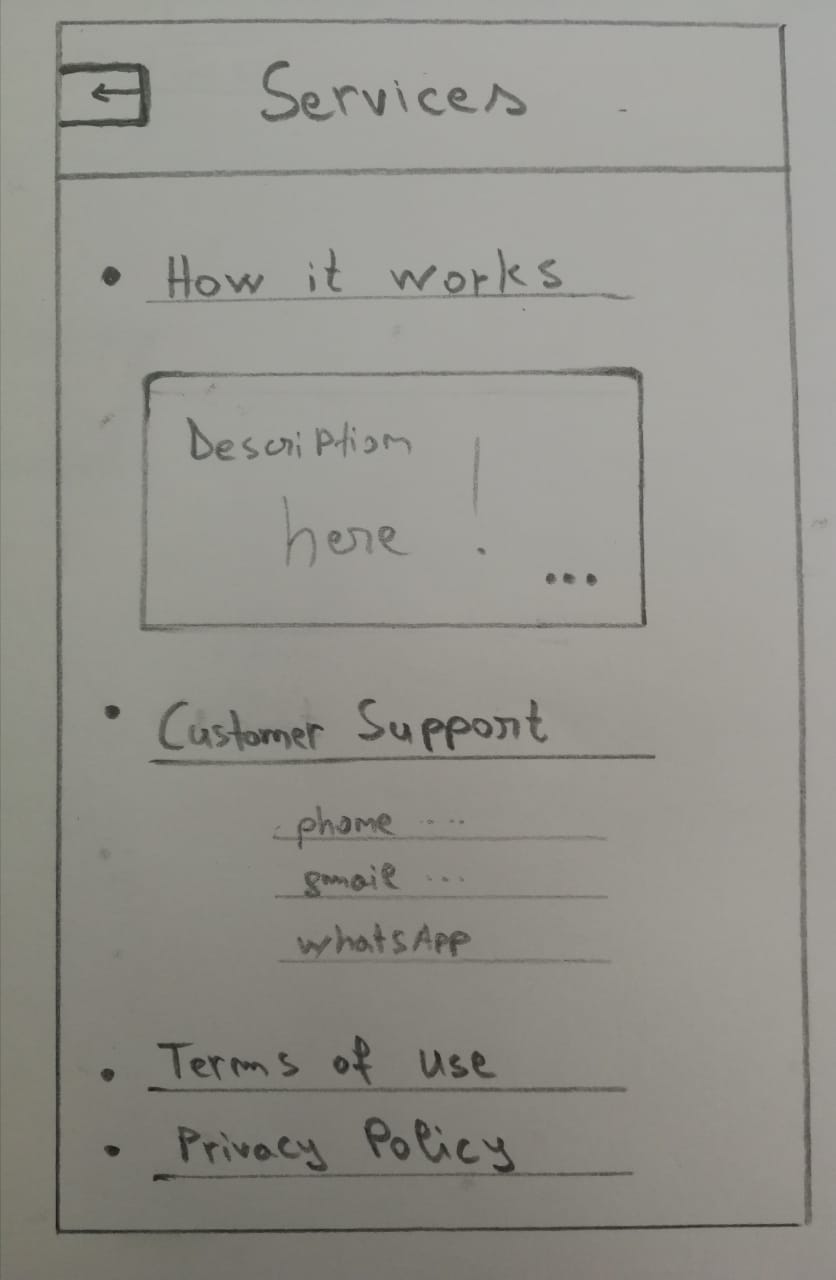 Services
• How it works
Description
here !
...
• Customer Support
phone ....
gmail ...
whatsApp
• Terms of use
• Privacy Policy